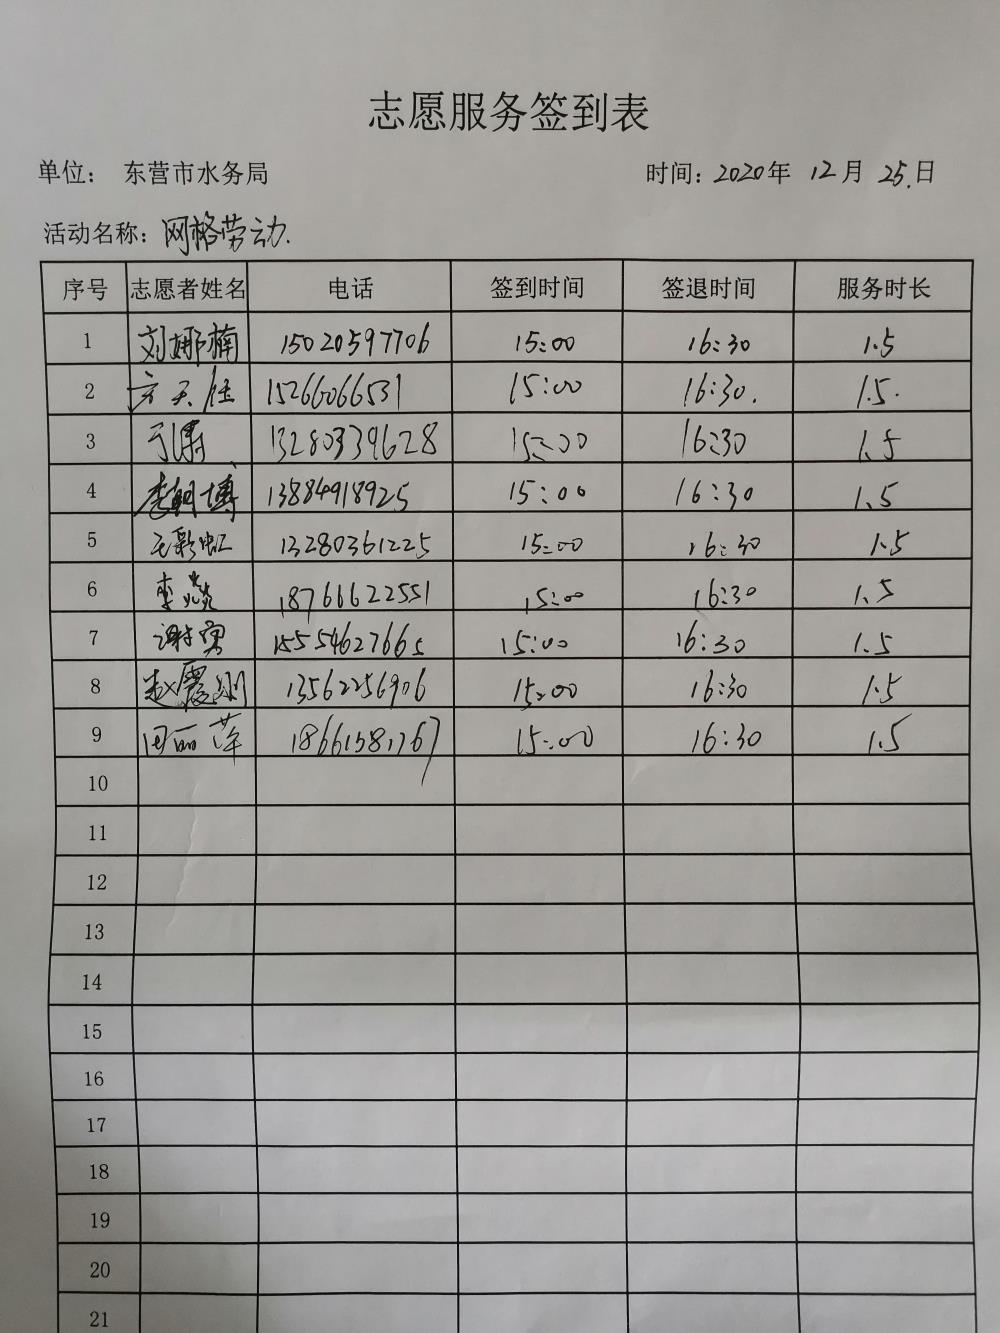 志愿服务签到表
单位： 东营市水务局 时间：2020年 12月 25.日
活动名称：网格劳动.
序号 志愿者姓名 电话 签到时间 签退时间 服务时长
1 刘娜楠 15020597706 15:00 16:30 1.5
2 15266066531 15:00 16:30. 1.5.
3 13280339628 15:00 16:30 1.5
4 李朝博 13884918925 15:00 16:30 1.5
5 王彩虹 13280361225 15:00 16:30 1.5
6 李燚 18766622551 15:00 16:30 1.5
7 谢寅 15554627665 15:00 16:30 1.5
8 赵震刚 13562256906 15:00 16:30 1.5
9 田丽萍 15:00 16:30 1.5
10
11
12
13
14
15
16
17
18
19
20
21